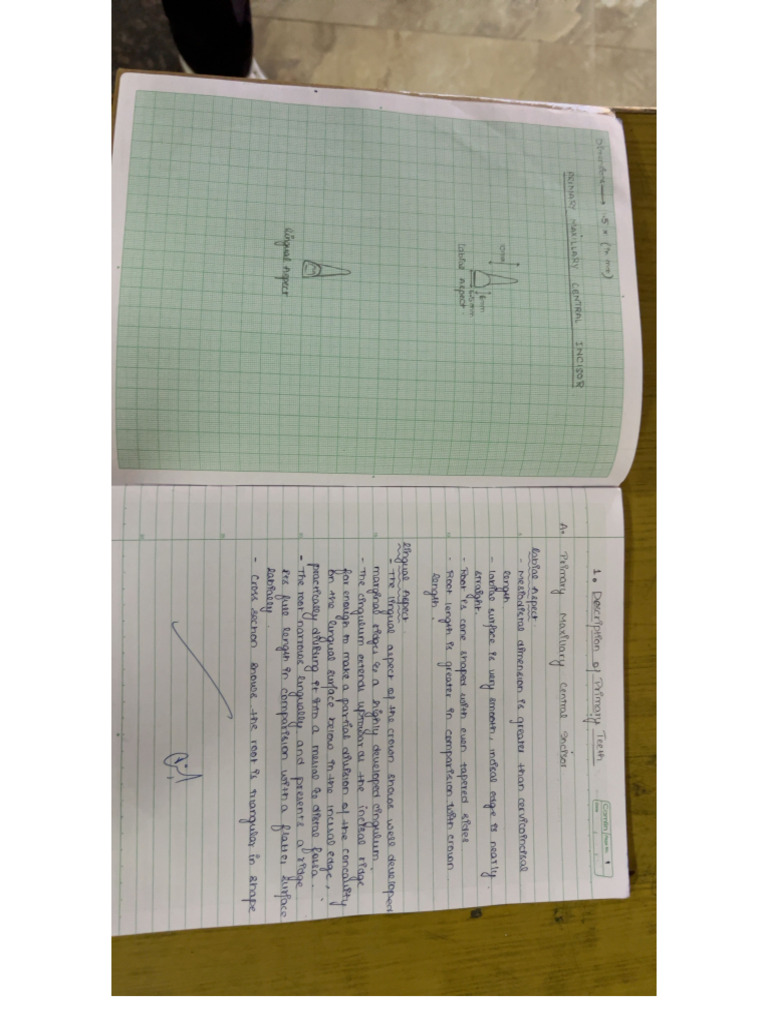 PRIMARY MAXILLARY CENTRAL INCISOR
labial aspect.
lingual aspect
1. Description of Primary Teeth
A. Primary Maxillary Central Incisor
labial Aspect.
- Mesiodistal dimension is greater than cervicoincisal
length
- labial surface is very smooth, incisal edge is nearly
straight.
- Root is cone shaped with even tapered sides
- Root length is greater in comparision with crown
length.
lingual Aspect
- The lingual aspect of the crown shows well developed
marginal ridges & a highly developed cingulum.
- The cingulum extends up toward the incisal ridge
far enough to make a partial division of the concavity
on the lingual surface below in the incisal edge,
practically dividing it into a mesial & distal fossa.
- The root narrows lingually and presents a ridge
its full length in comparision with a flatter surface
labially.
- Cross section shows the root is triangular in shape